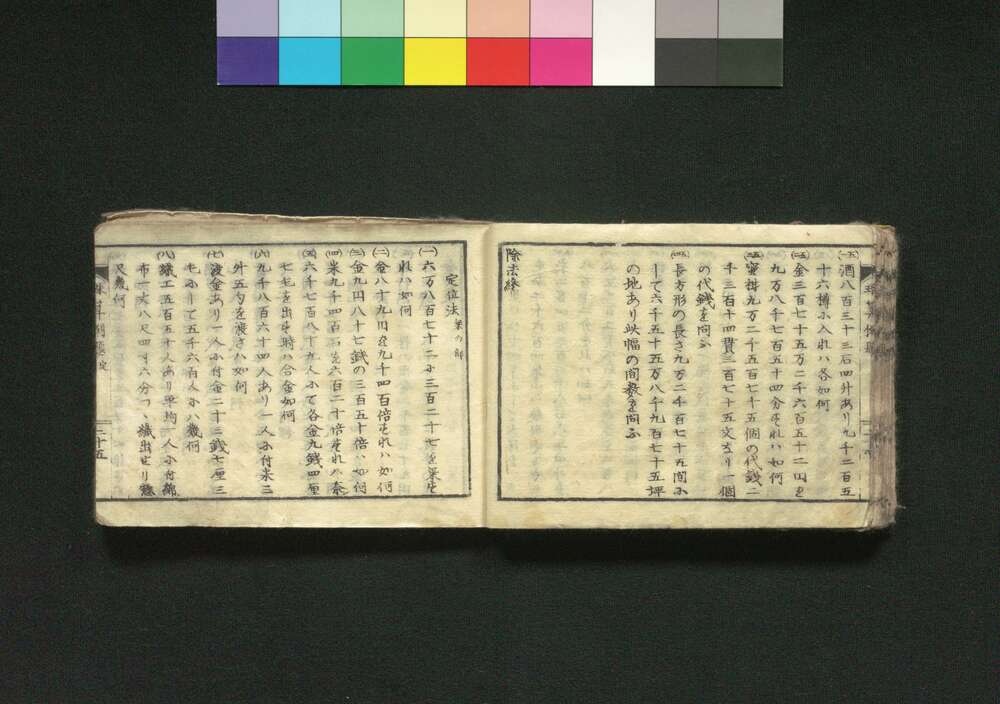 酒八百三十三石四升あり九千二百五
十六樽小入れハ各如何
金三百七十五万二千六百五十二円を
九万八千七百五十四分すれハ如何
蜜柑九万二千五百七十五個の代銭二
千三百十四貫三百七十五文なり一個
の代銭を問ふ
長方形の長さ九万二千百七十五間小
して六千五十五万八千九百七十五坪
の地あり此幅の間数を問ふ
除法終
定位法 乗の部
(一)六万八百七十二小三百二十七を乗す
れハ如何
(二)金八十九円を九千四百倍すれハ如何
(三)金九円八十七銭の三百五十倍ハ如何
(四)米九千四百石を六百二十倍すれハ
(五)六千七百八十九人小て各金九銭四厘
七毛を出す時ハ合金如何
(六)九千八百六十四人あり一人小付米三
升五勺を渡さハ如何
(七)渡金あり一人小付金二十三銭七厘三
毛小して五千六百人小ハ幾何
(八)職工五百五十人あり平均一人小付
布一丈八尺四寸六分つゝ織出せり
尺幾何
二十五